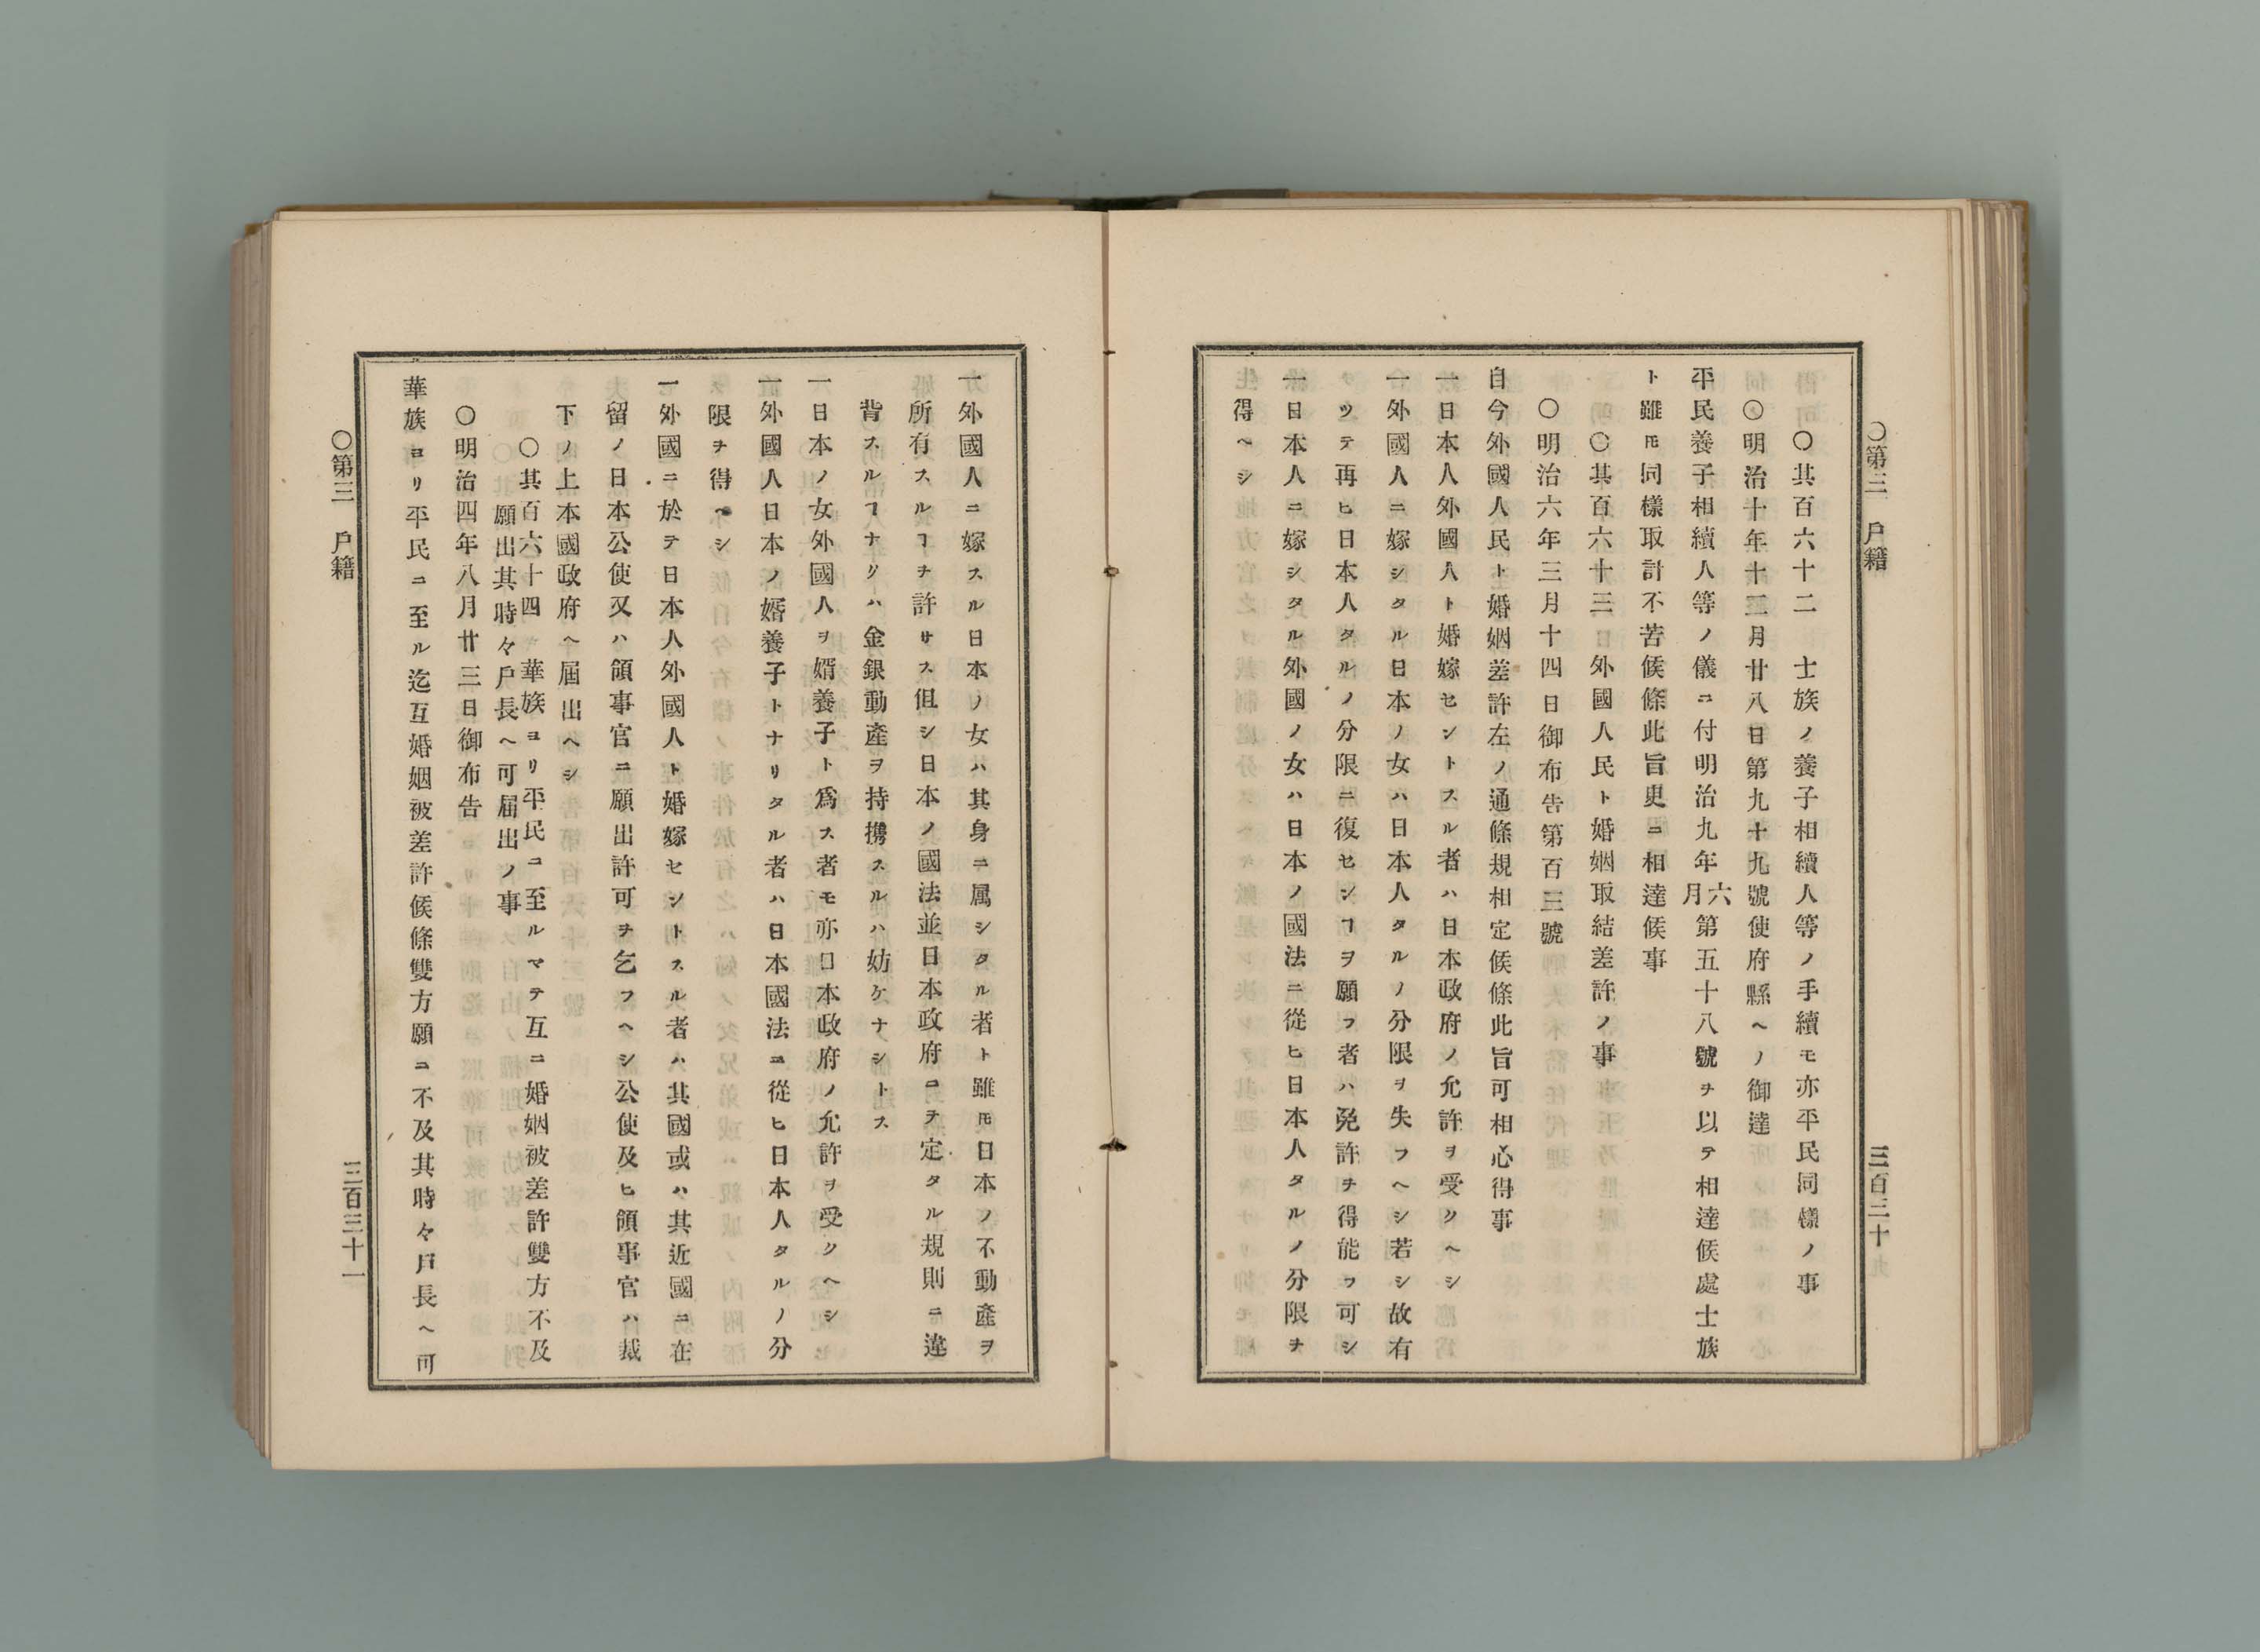 〇第三　戸籍
三百三十
〇其百六十二　士族ノ養子相續人等ノ手續モ亦平民同樣ノ事
〇明治十年十二月廿八日第九十九號使府縣ヘノ御達
平民養子相續人等ノ儀ニ付明治九年六月第五十八號ヲ以テ相達候處士族
ト雖𪜈同樣取計不苦候條此旨更ニ相達候事
〇其百六十三　外國人民ト婚姻取結差許ノ事
〇明治六年三月十四日御布告第百三號
自今外國人民ト婚姻差許左ノ通條規相定候條此旨可相心得事
一日本人外國人ト婚嫁セントスル者ハ日本政府ノ允許ヲ受クヘシ
一外國人ニ嫁シタル日本ノ女ハ日本人タルノ分限ヲ失フヘシ若シ故有
ツテ再ヒ日本人タルノ分限ニ復センヿヲ願フ者ハ免許ヲ得能フ可シ
一日本人ニ嫁シタル外國ノ女ハ日本ノ國法ニ從ヒ日本人タルノ分限ヲ
得ヘシ
一外國人ニ嫁スル日本ノ女ハ其身ニ属シタル者ト雖𪜈日本ノ不動產ヲ
所有スルヿヲ許サス但シ日本ノ國法並日本政府ニテ定タル規則ニ違
背スルヿナクハ金銀動產ヲ持携スルハ妨ケナシトス
一日本ノ女外國人ヲ婿養子ト爲ス者モ亦日本政府ノ允許ヲ受クヘシ
一外國人日本ノ婿養子トナリタル者ハ日本國法ニ從ヒ日本人タルノ分
限ヲ得ヘシ
一外國ニ於テ日本人外國人ト婚嫁セントスル者ハ其國或ハ其近國ニ在
留ノ日本公使又ハ領事官ニ願出許可ヲ乞フヘシ公使及ヒ領事官ハ裁
下ノ上本國政府ヘ届出ヘシ
〇其百六十四　華族ヨリ平民ニ至ルマテ互ニ婚姻被差許雙方不及
願出其時々戸長ヘ可届出ノ事
〇明治四年八月廿三日御布告
華族ヨリ平民ニ至ル迄互婚姻被差許候條雙方願ニ不及其時々戸長ヘ可
〇第三　戸籍
三百三十一